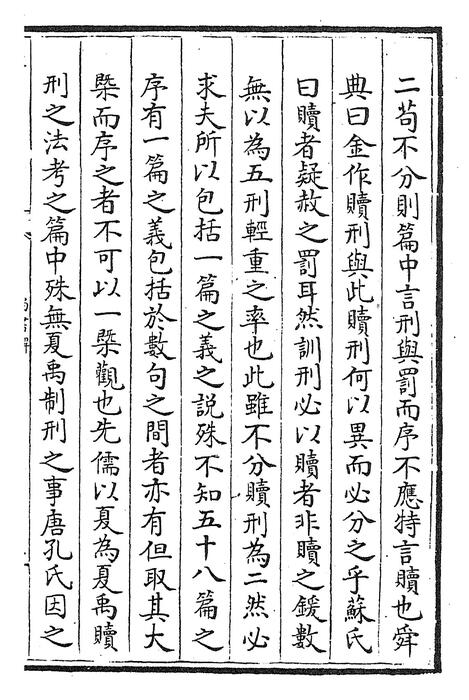 二苟不分則篇中言刑與罰而序不應特言贖也舜
典曰金作贖刑與此贖刑何以異而必分之乎蘇氏
曰贖者疑赦之罰耳然訓刑必以贖者非贖之鍰數
無以為五刑輕重之率也此雖不分贖刑為二然必
求夫所以包括一篇之義之說殊不知五十八篇之
序有一篇之義包括於數句之間者亦有但取其大
槩而序之者不可以一槩觀也先儒以夏為夏禹贖
刑之法考之篇中殊無夏禹制刑之事唐孔氏因之